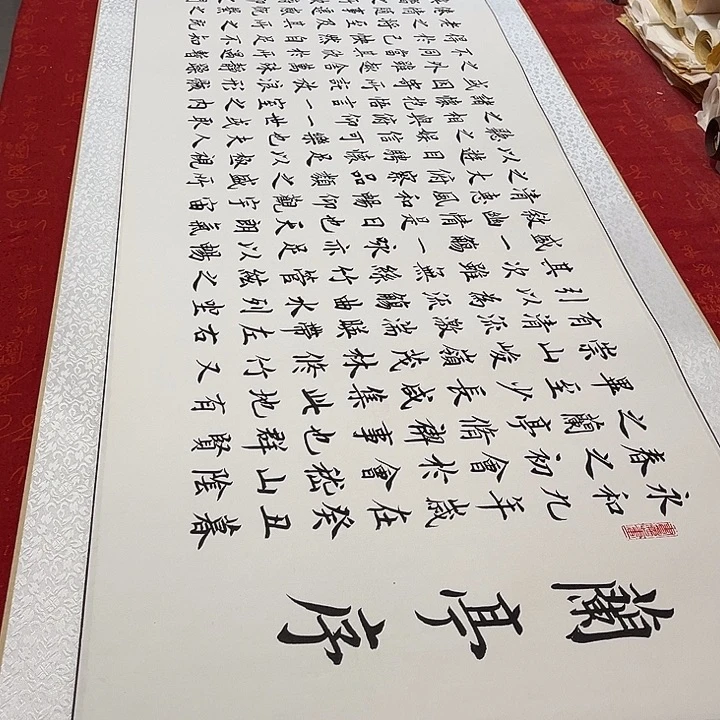 蘭亭序
永和九年歲在癸丑暮
春之初會於會稽山陰
之蘭亭脩禊事也群賢
畢至少長咸集此地有
崇山峻嶺茂林脩竹又
有清流激湍映帶左右
引以為流觴曲水列坐
其次雖無絲竹管絃之
盛一觴一詠亦足以暢
敘幽情是日也天朗氣
清惠風和暢仰觀宇宙
之大俯察品類之盛所
以遊目騁懷足以極視
聽之娛信可樂也夫人
之相與俯仰一世或取
諸懷抱悟言一室之內
或因寄所託放浪形骸
之外雖趣舍萬殊靜躁
不同當其欣於所遇暫
得於己快然自足不